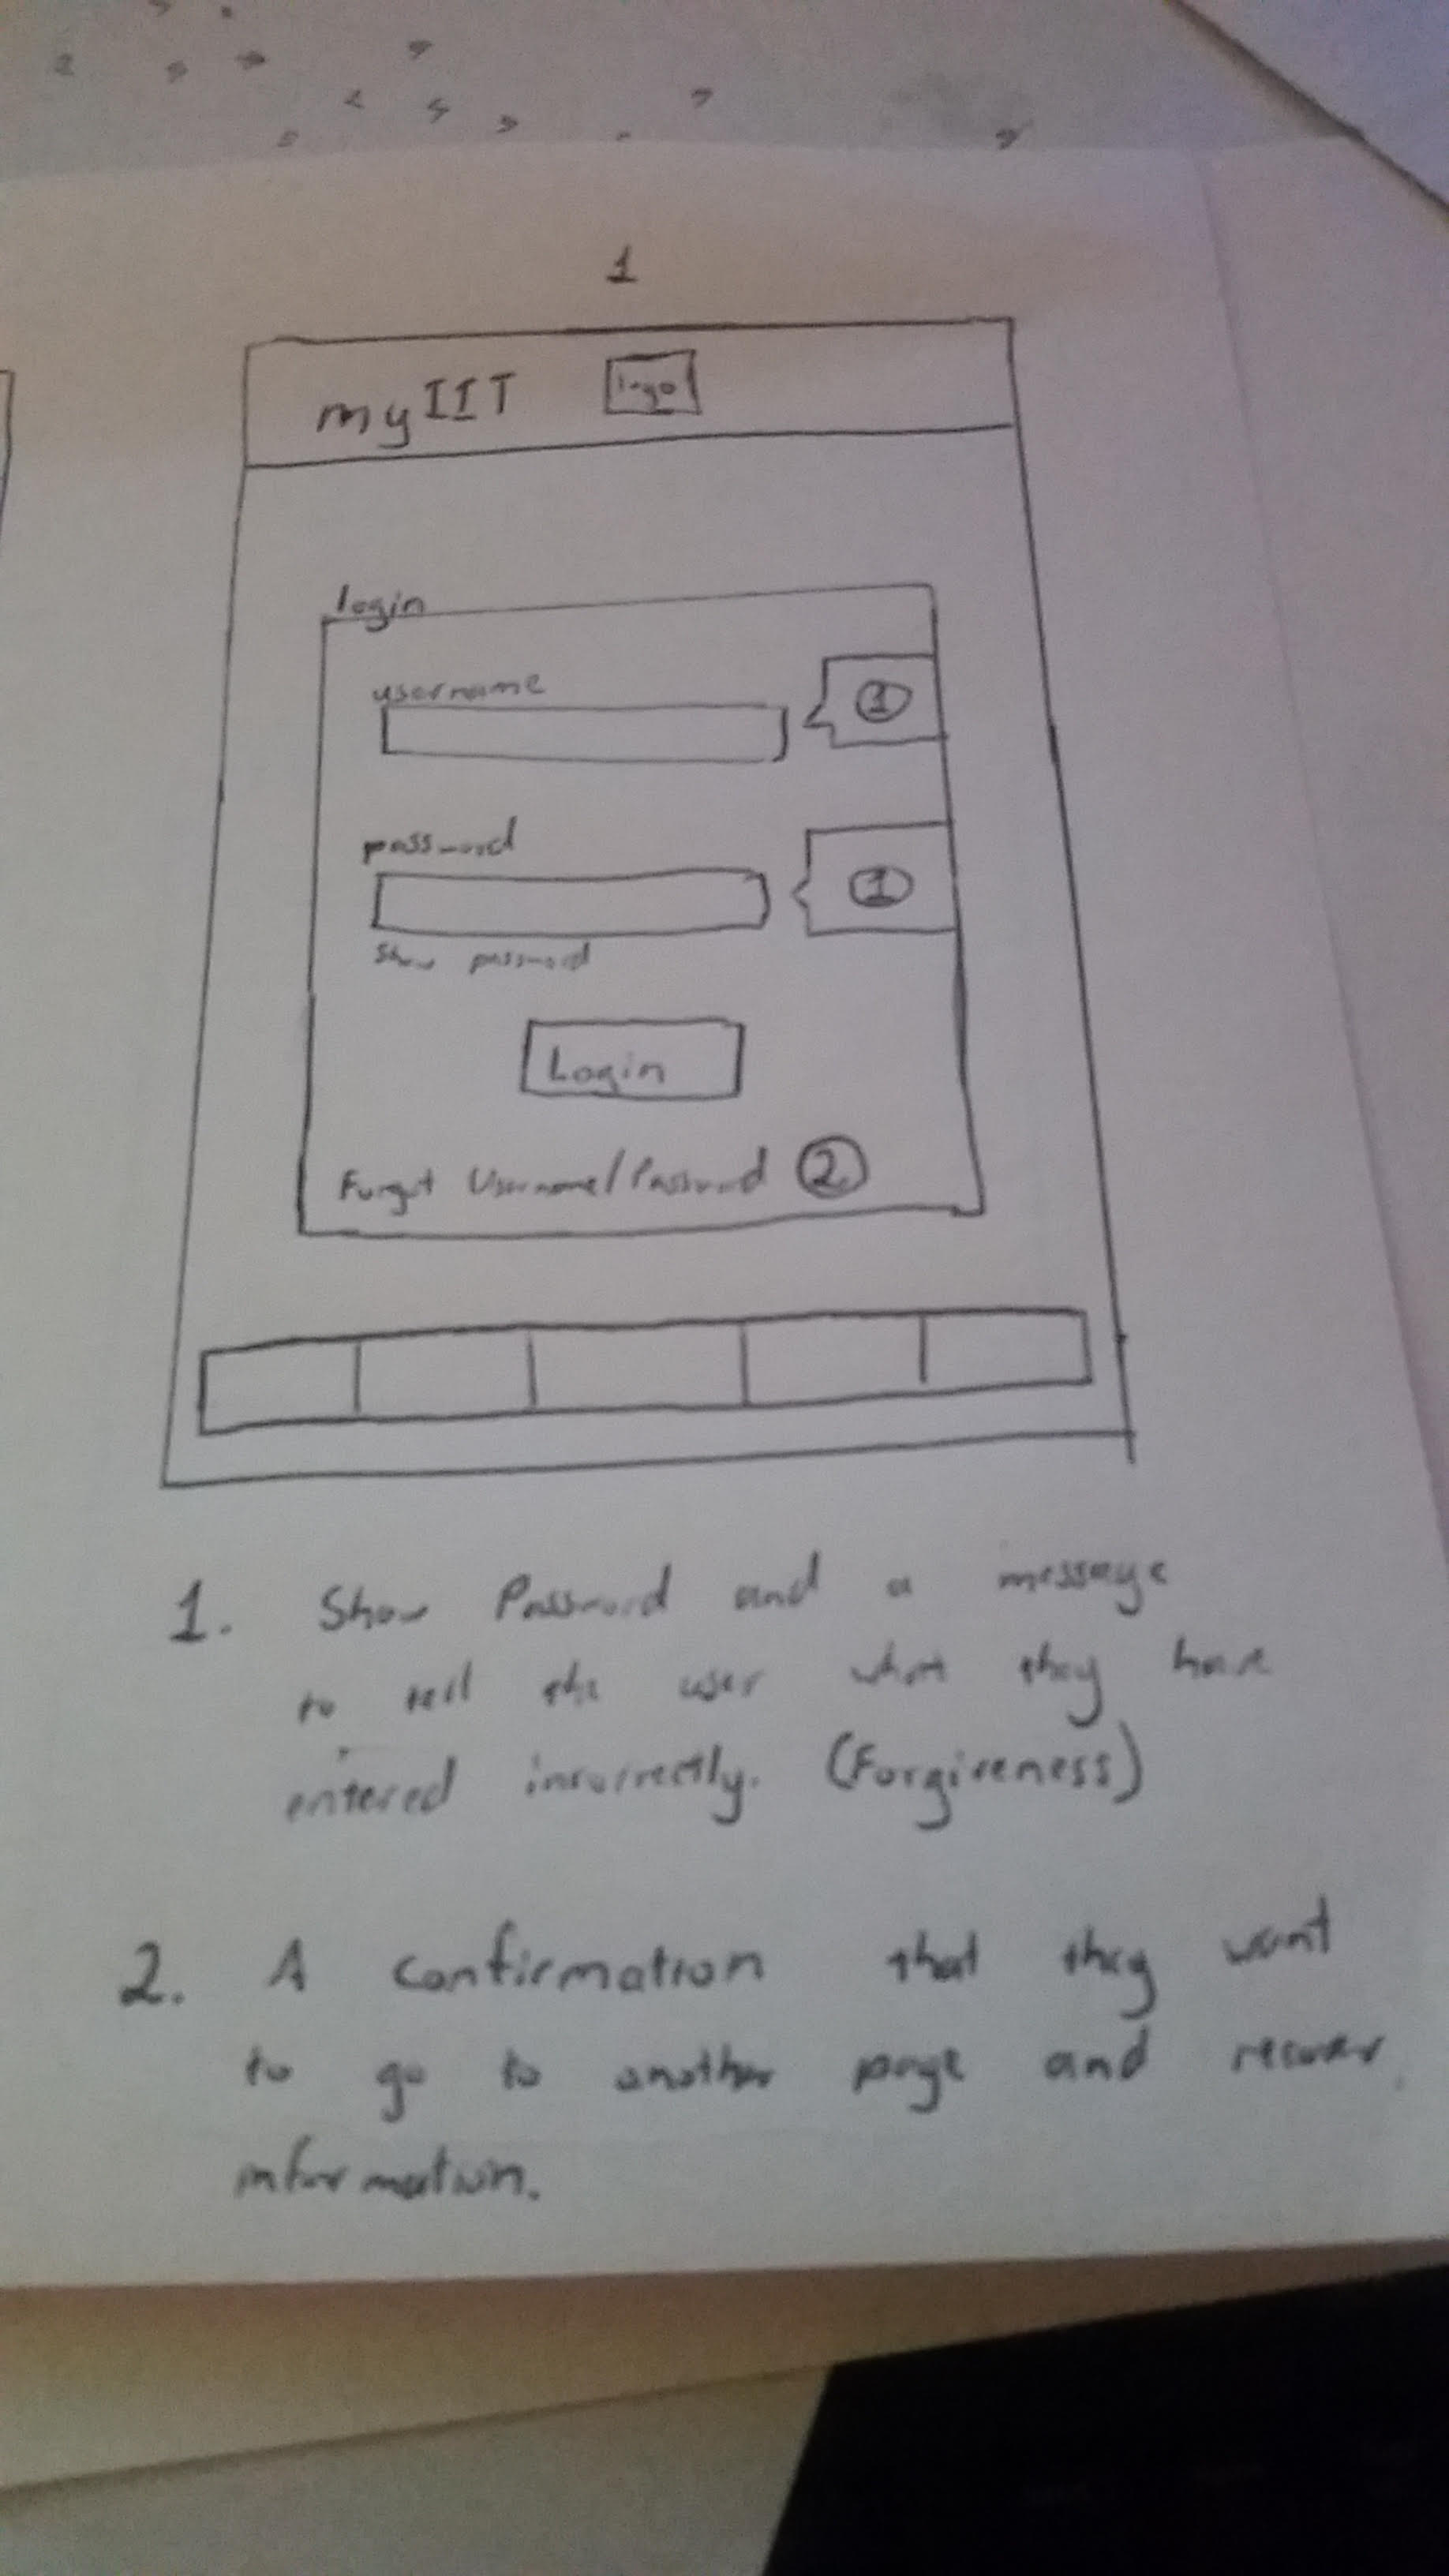 1
myIIT logo
login
username
1
password
1
Show password
Login
Forgot Username/Password 2
1. Show Password and a message
to tell the user what they have
entered incorrectly. (Forgiveness)
2. A confirmation that they want
to go to another page and recover
information.